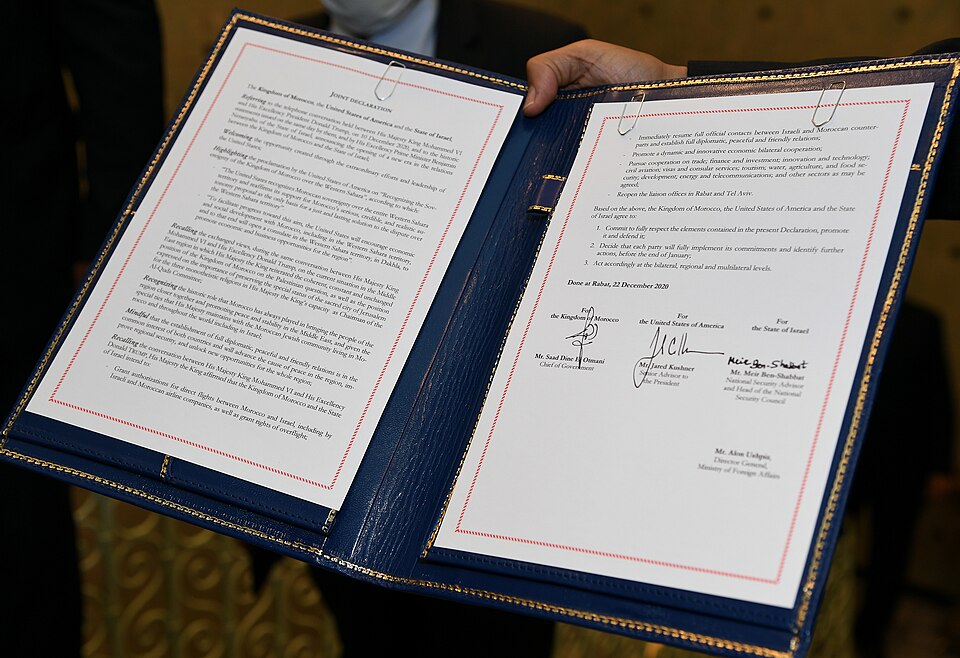 JOINT DECLARATION
The Kingdom of Morocco, the United States of America and the State of Israel,
Referring to the telephone conversation held between His Majesty King Mohammed VI
and His Excellency President Donald Trump, on 10 December 2020, and to the historic
statements issued on the same day by them and by His Excellency Prime Minister Benjamin
Netanyahu of the State of Israel announcing the opening of a new era in the relations
between the Kingdom of Morocco and the State of Israel;
Welcoming the opportunity created through the extraordinary efforts and leadership of
the United States;
Highlighting the proclamation by the United States of America on "Recognizing the Sov-
ereignty of the Kingdom of Morocco over the Western Sahara", according to which:
"The United States recognizes Moroccan sovereignty over the entire Western Sahara
territory and reaffirms its support for Morocco's serious, credible, and realistic au-
tonomy proposal as the only basis for a just and lasting solution to the dispute over
the Western Sahara territory";
"To facilitate progress toward this aim, the United States will encourage economic
and social development with Morocco, including in the Western Sahara territory,
and to that end will open a consulate in the Western Sahara territory, in Dakhla, to
promote economic and business opportunities for the region"
Recalling the exchanged views, during the same conversation between His Majesty King
Mohammed VI and His Excellency Donald Trump, on the current situation in the Middle
East region in which His Majesty the King reiterated the coherent, constant and unchanged
position of the Kingdom of Morocco on the Palestinian question, as well as the position
expressed on the importance of preserving the special status of the sacred city of Jerusalem
for the three monotheistic religions in His Majesty the King's capacity as Chairman of the
Al-Quds Committee;
Recognizing the historic role that Morocco has always played in bringing the people of the
region closer together and promoting peace and stability in the Middle East, and given the
special ties that His Majesty maintains with the Moroccan Jewish community living in Mo-
rocco and throughout the world including in Israel;
Mindful that the establishment of full diplomatic, peaceful and friendly relations is in the
common interest of both countries and will advance the cause of peace in the region, im-
prove regional security, and unlock new opportunities for the whole region;
Recalling the conversation between His Majesty King Mohammed VI and His Excellency
Donald TRUMP, His Majesty the King affirmed that the Kingdom of Morocco and the State
of Israel intend to:
- Grant authorizations for direct flights between Morocco and Israel, including by
Israeli and Moroccan airline companies, as well as grant rights of overflight;
- Immediately resume full official contacts between Israeli and Moroccan counter-
parts and establish full diplomatic, peaceful and friendly relations;
- Promote a dynamic and innovative economic bilateral cooperation;
- Pursue cooperation on trade; finance and investment; innovation and technology;
civil aviation; visas and consular services; tourism; water, agriculture, and food se-
curity; development; energy and telecommunications; and other sectors as may be
agreed;
- Reopen the liaison offices in Rabat and Tel Aviv.
Based on the above, the Kingdom of Morocco, the United States of America and the State
of Israel agree to:
1. Commit to fully respect the elements contained in the present Declaration, promote
it and defend it;
2. Decide that each party will fully implement its commitments and identify further
actions, before the end of January;
3. Act accordingly at the bilateral, regional and multilateral levels.
Done at Rabat, 22 December 2020
For
the Kingdom of Morocco
Mr. Saad Dine El Otmani
Chief of Government
For
the United States of America
Mr. Jared Kushner
Senior Advisor to
the President
For
the State of Israel
Meir Ben-Shabbat
Mr. Meir Ben-Shabbat
National Security Advisor
and Head of the National
Security Council
Mr. Alon Ushpiz,
Director General,
Ministry of Foreign Affairs